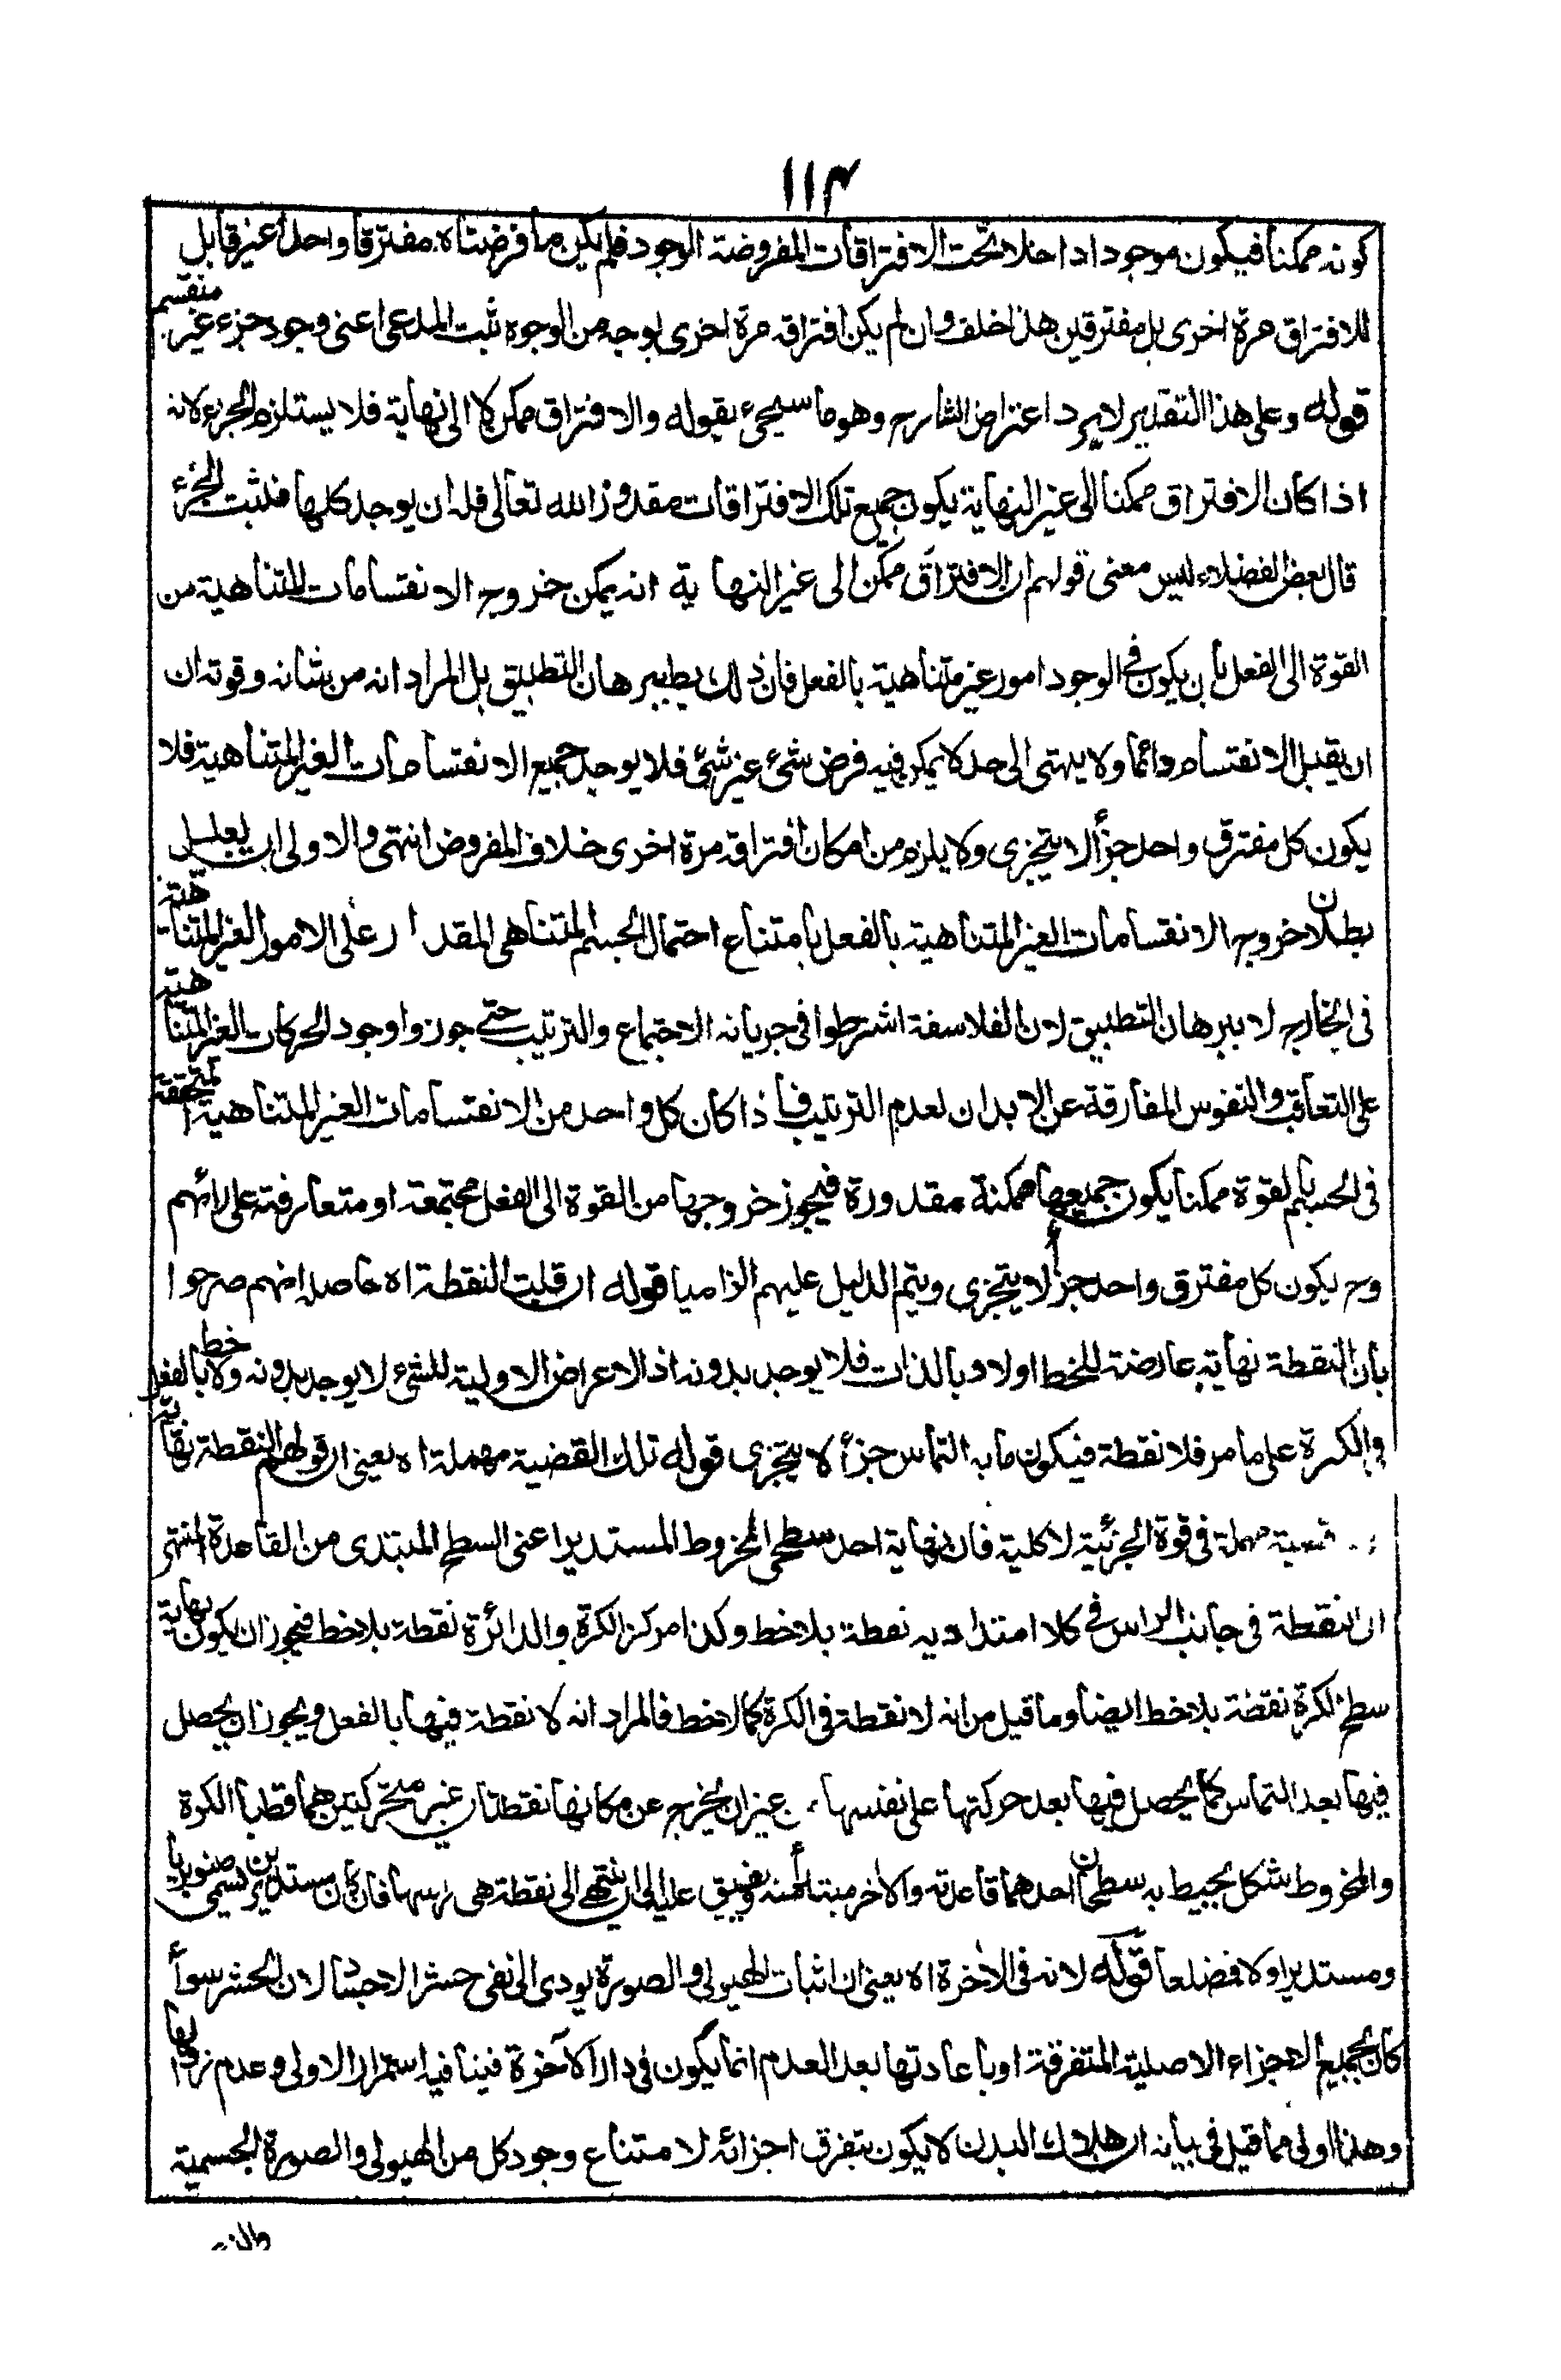 ١١٤
كونه ممكنا فيكون موجودا داخلا تحت الافتراقات المفروضة الوجود فلم يكن ما فرضناه مفترقا واحدا غير قابل
للافتراق مرة اخرى بل مفترقين هذا خلف وان لم يكن افتراقه مرة اخرى بوجه من الوجوه ثبت المدعى اعنى وجود جزء غير منقسم
قوله وعلى هذا التقدير لا يرد اعتراض الشارح وهو ما سيجئ بقوله والافتراق ممكن لا الى نهاية فلا يستلزم الجزء لانه
اذا كان الافتراق ممكنا الى غير النهاية يكون جميع تلك الافتراقات مقدور الله تعالى فله ان يوجد كلها فثبت الجزء
قال بعض الفضلاء ليس معنى قولهم ان الافتراق ممكن الى غير النهاية انه يمكن خروج الانقسامات المتناهية من
القوة الى الفعل بأن يكون فى الوجود امور غير متناهية بالفعل فان ذلك يطله برهان التطبيق بل المراد انه من شانه وقوته ان
ان يقبل الانقسام دائما ولا ينتهى الى حد لا يمكن فيه فرض شئ غير شئ فلا يوجد جميع الانقسامات الغير المتناهية فلا
يكون كل مفترق واحد جزأ لا يتجزى ولا يلزم من امكان افتراقه مرة اخرى خلاف المفروض انتهى والاولى ان يعلل
بطلان خروج الانقسامات الغير المتناهية بالفعل بامتناع احتمال الجسم المتناهى المقدار على الامور الغير المتناهية
فى الخارج لا ببرهان التطبيق لان الفلاسفة اشترطوا فى جريانه الاجتماع والترتيب حتى جوزوا وجود الحركات الغير المتناهية
على التعاقب والنفوس المفارقة عن الابدان لعدم الترتيب فاذا كان كل واحد من الانقسامات الغير المتناهية المتحققة
فى الجسم بالقوة ممكنا يكون جميعها ممكنة مقدورة فيجوز خروجها من القوة الى الفعل مجتمعة او متعارفة على رائهم
وح يكون كل مفترق واحد جزأ لا يتجزى ويتم الدليل عليهم الزاميا قوله ان قلت النقطة اه حاصله انهم صرحوا
بان النقطة نهاية عارضة للخط اولا وبالذات فلا يوجد بدونه اذ الاعراض الاولية للشئ لا يوجد بدونه ولا خط بالفعل
فى الكرة على ما مر فلا نقطة فيكون ما به التماس جزأ لا يتجزى قوله تلك القضية مهملة اه يعنى ان قولهم النقطة نهاية
قضية مهملة فى قوة الجزئية لا كلية فان نهاية احد سطحى المخروط المستدير اعنى السطح المبتدى من القاعدة المنتهى
الى النقطة فى جانب الراس فى كلا امتداديه نقطة بلا خط وكذا مركز الكرة والدائرة نقطة بلا خط فيجوز ان يكون نهاية
سطح الكرة نقطة بلا خط ايضا وما قيل من انه لا نقطة فى الكرة كما لا خط فالمراد انه لا نقطة فيها بالفعل ويجوز ان يحصل
فيها بعد التماس كما يحصل فيها بعد حركتها على نفسها من غير ان يخرج عن مكانها نقطتان غير متحركتين هما قطبا الكرة
والمخروط شكل يحيط به سطحان احدهما قاعدته والآخر مبتدأ منه ويضيق عليه الى ان ينتهى الى نقطة هى راسها فان كان مستديرين يسمى صنوبريا
ومستديرا والا فمضلعا قوله لانه فى الآخرة اه يعنى ان اثبات الهيولى والصورة يودى الى نفى حشر الاجساد لان الحشر سواء
كان بجميع الاجزاء الاصلية المتفرقة او باعادتها بعد العدم انما يكون فى دار الآخرة فينافيه استمرار الاولى وعدم زوالها
وهذا اولى مما قيل فى بيانه ان هلاك البدن لا يكون بتفرق اجزائه لامتناع وجود كل من الهيولى والصورة الجسمية